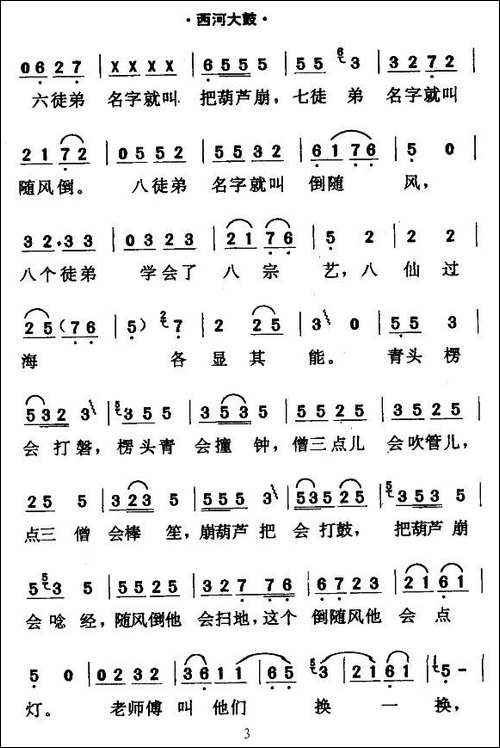 ·西河大鼓·
0 6 2 7 | X X X X | 6 5 5 5 | 5 5 6 3 | 3 2 7 2 |
六徒弟 名字就叫 把葫芦崩，七徒 弟 名字就叫
2 1 7 2 | 0 5 5 2 | 5 5 3 2 | 6 1 7 6 | 5 0 |
随风倒。 八徒弟 名字就叫 倒随 风，
3 2·3 3 | 0 3 2 3 | 2 1 7 6 | 5 2 | 2 2 |
八个徒弟 学会了 八 宗 艺，八 仙 过
2 5 (7 6 | 5) 2 7 | 2 2 5 | 3 0 | 5 5 3 |
海 各 显 其 能。 青头 楞
5 3 2 3 | 5 3 5 5 | 3 5 3 5 | 5 5 2 5 | 3 5 2 5 |
会 打 磬，楞头青 会撞 钟，僧三点儿 会吹管儿，
2 5 5 | 3 2 3 5 | 5 5 5 3 | 5 3 5 2 5 | 5 3 5 5 |
点三 僧 会棒 笙，崩葫芦 把 会 打鼓， 把葫芦 崩
5 3 5 | 5 5 2 5 | 3 2 7 7 6 | 6 7 2 3 | 2 1 6 1 |
会 唸 经，随风倒他 会扫地，这个 倒随风他 会 点
5 0 | 0 2 3 2 | 1 6 1 2 | 3 5 3 | 2 1 6 1 | 5 - |
灯。 老师傅 叫 他们 换 一 换，
3